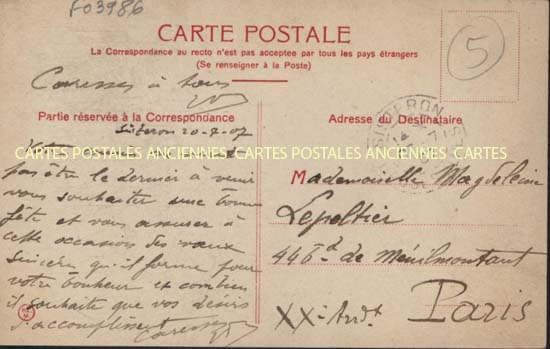 F03986
CARTE POSTALE
La Correspondance au recto n'est pas acceptee par tous les pays étrangers
(Se renseigner à la Poste)
5
Caresses à tous
Partie réservée à la Correspondance
Adresse du Destinataire
SISTERON
14
Sisteron 20-7-07
CARTES POSTALES ANCIENNES CARTES POSTALES ANCIENNES CARTES
pas être le dernier à venir
vous souhaiter une bonne
fête et vous assurer à
cette occasion des vœux
sincères qu'il forme pour
votre bonheur et combien
il souhaite que vos désirs
s'accomplissent Caresses
Mademoiselle Magdeleine
Lepeltier
44 Bd de Ménilmontant
XXe Arrdt
Paris